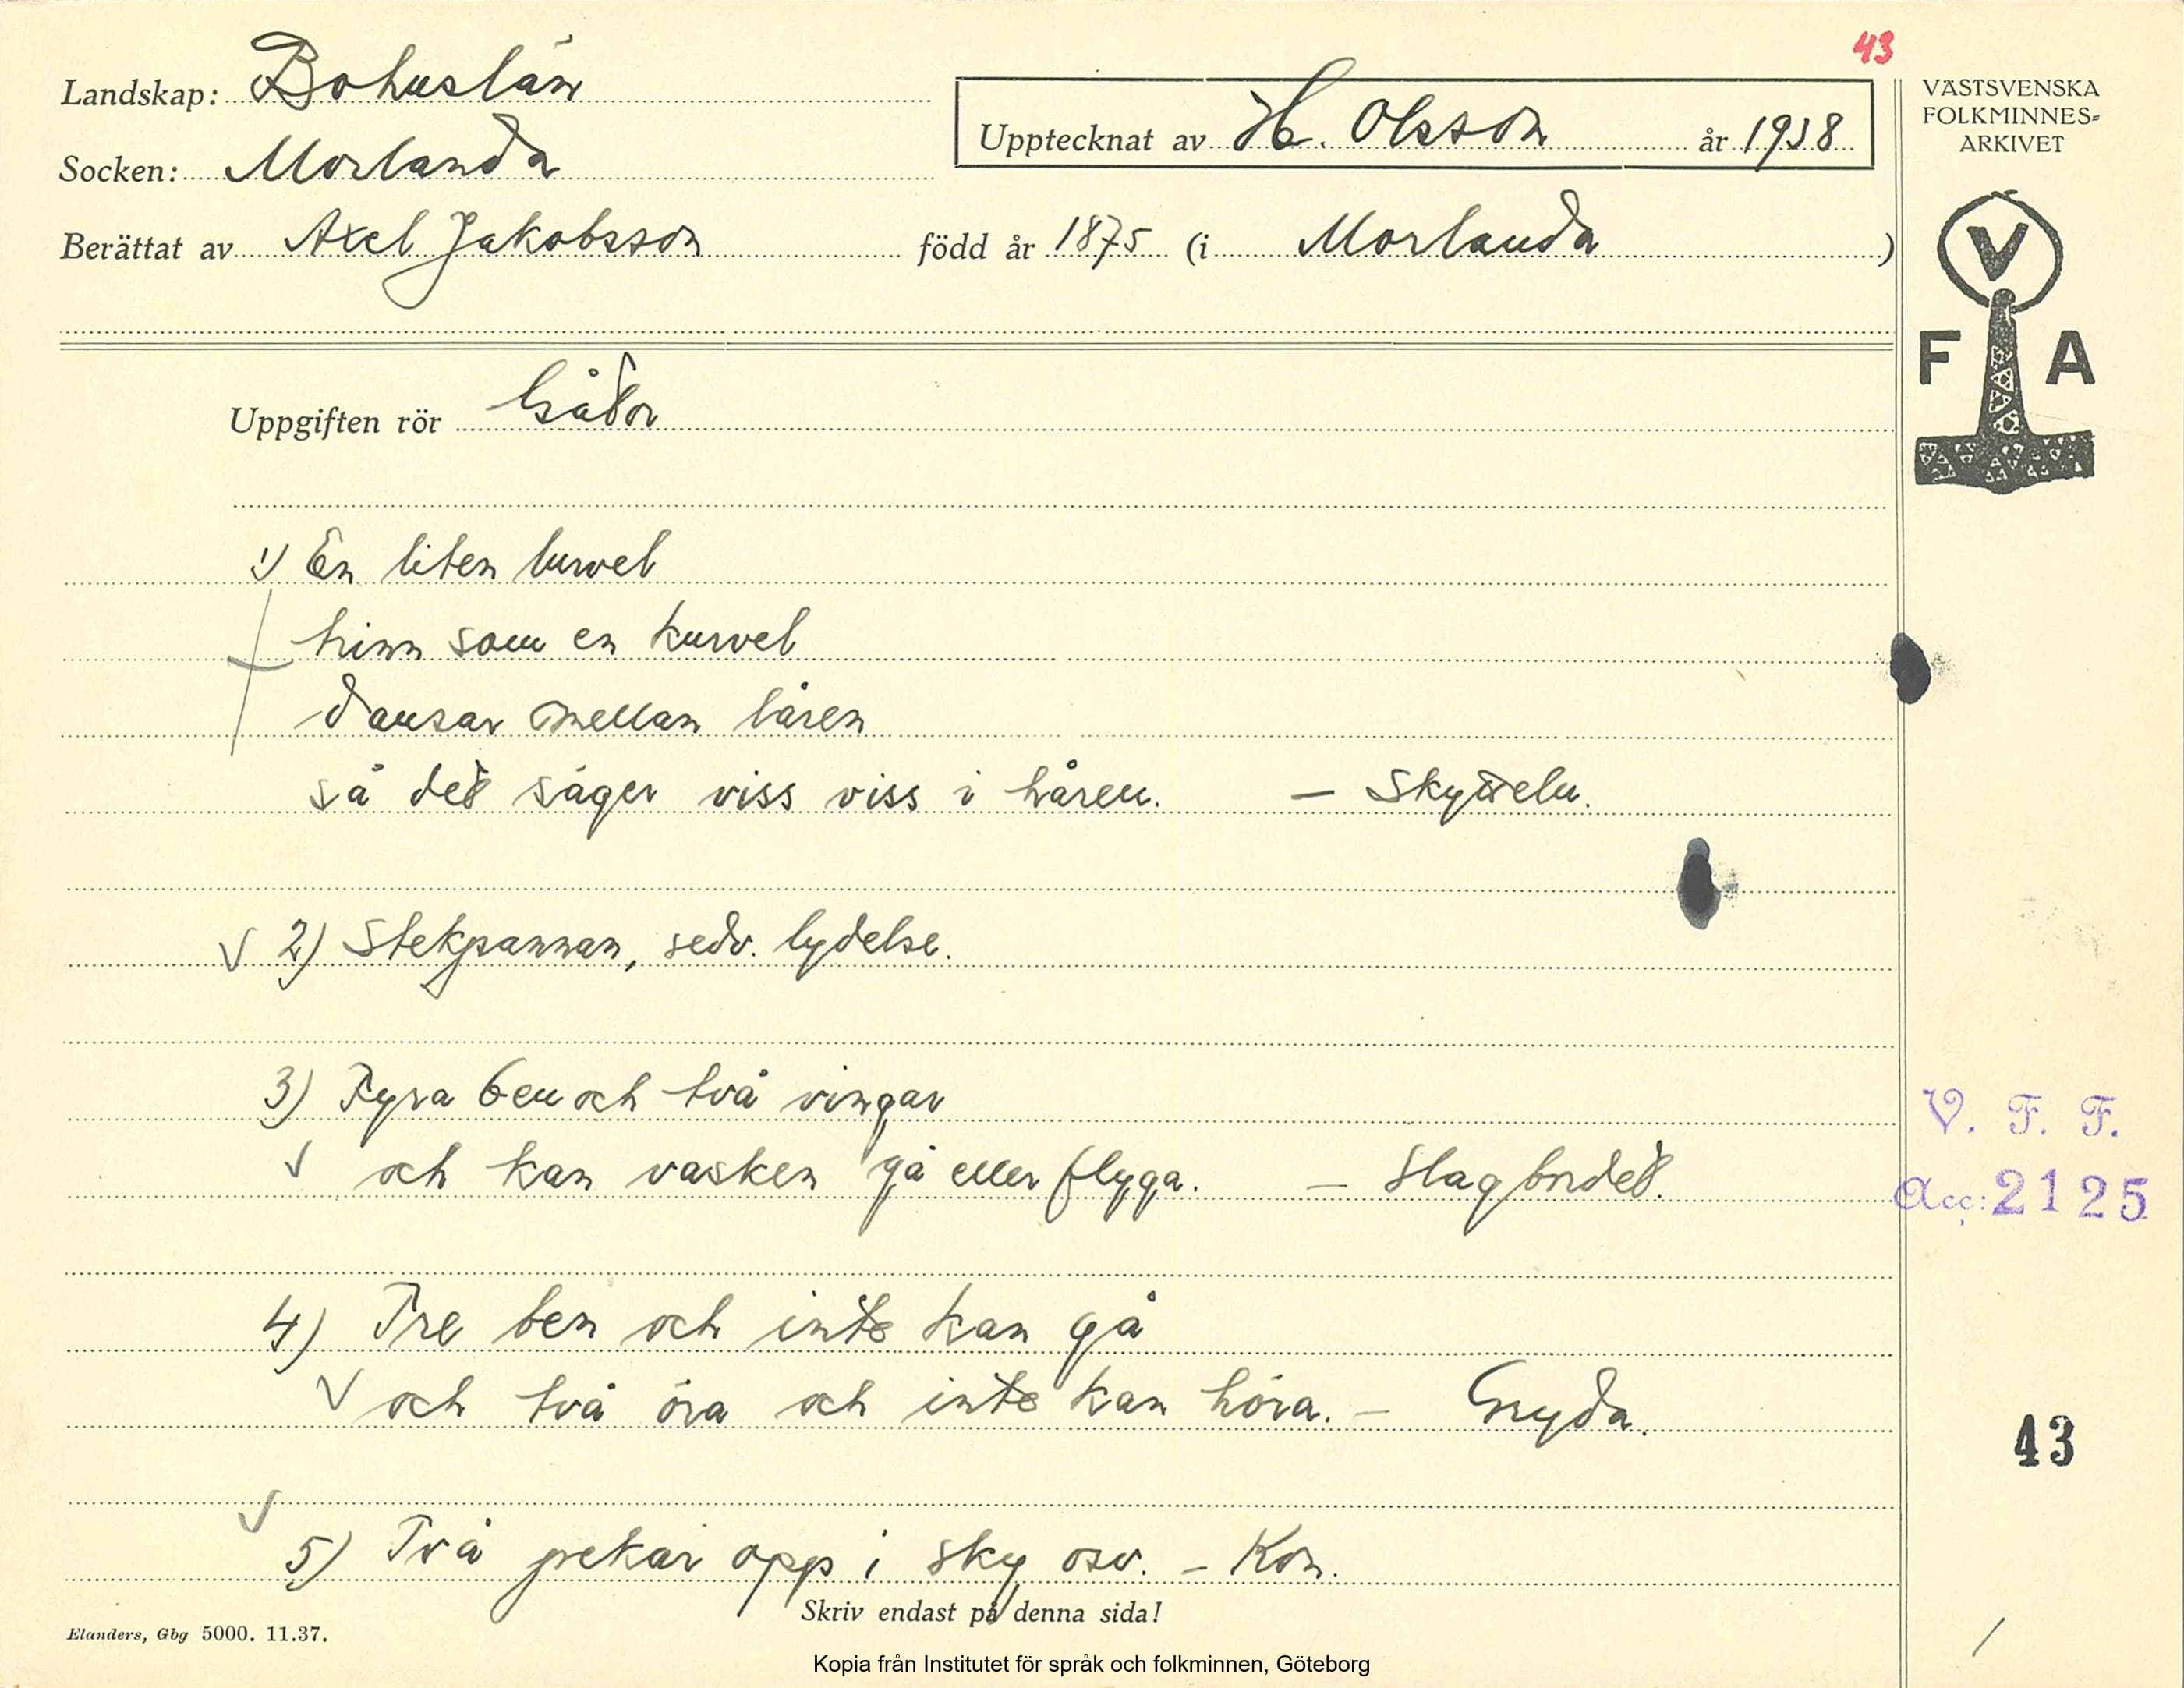 43
Landskap: Bohuslän
Socken: Morlanda
Upptecknat av H. Olsson år 1938
VÄSTSVENSKA
FOLKMINNES=
ARKIVET
Berättat av Axel Jakobsson född år 1875 (i Morlanda)
V
F A
Uppgiften rör Gåtor
1) En liten lurvel
trinn som en kurvel
dansar mellan låren
så det säger viss viss i håren. – Skytteln.
2) Stekpannan, sedv. lydelse.
3) Fyra ben och två vingar
och kan vasken gå eller flyga. – Slagbordet.
V. F. F.
Acc: 2125
4) Tre ben och inte kan gå
och två öra och inte kan höra. – Gryda.
43
5) Två pekar opp i sky osv. – Kon.
Skriv endast på denna sida!
Elanders, Gbg 5000. 11.37.
Kopia från Institutet för språk och folkminnen, Göteborg